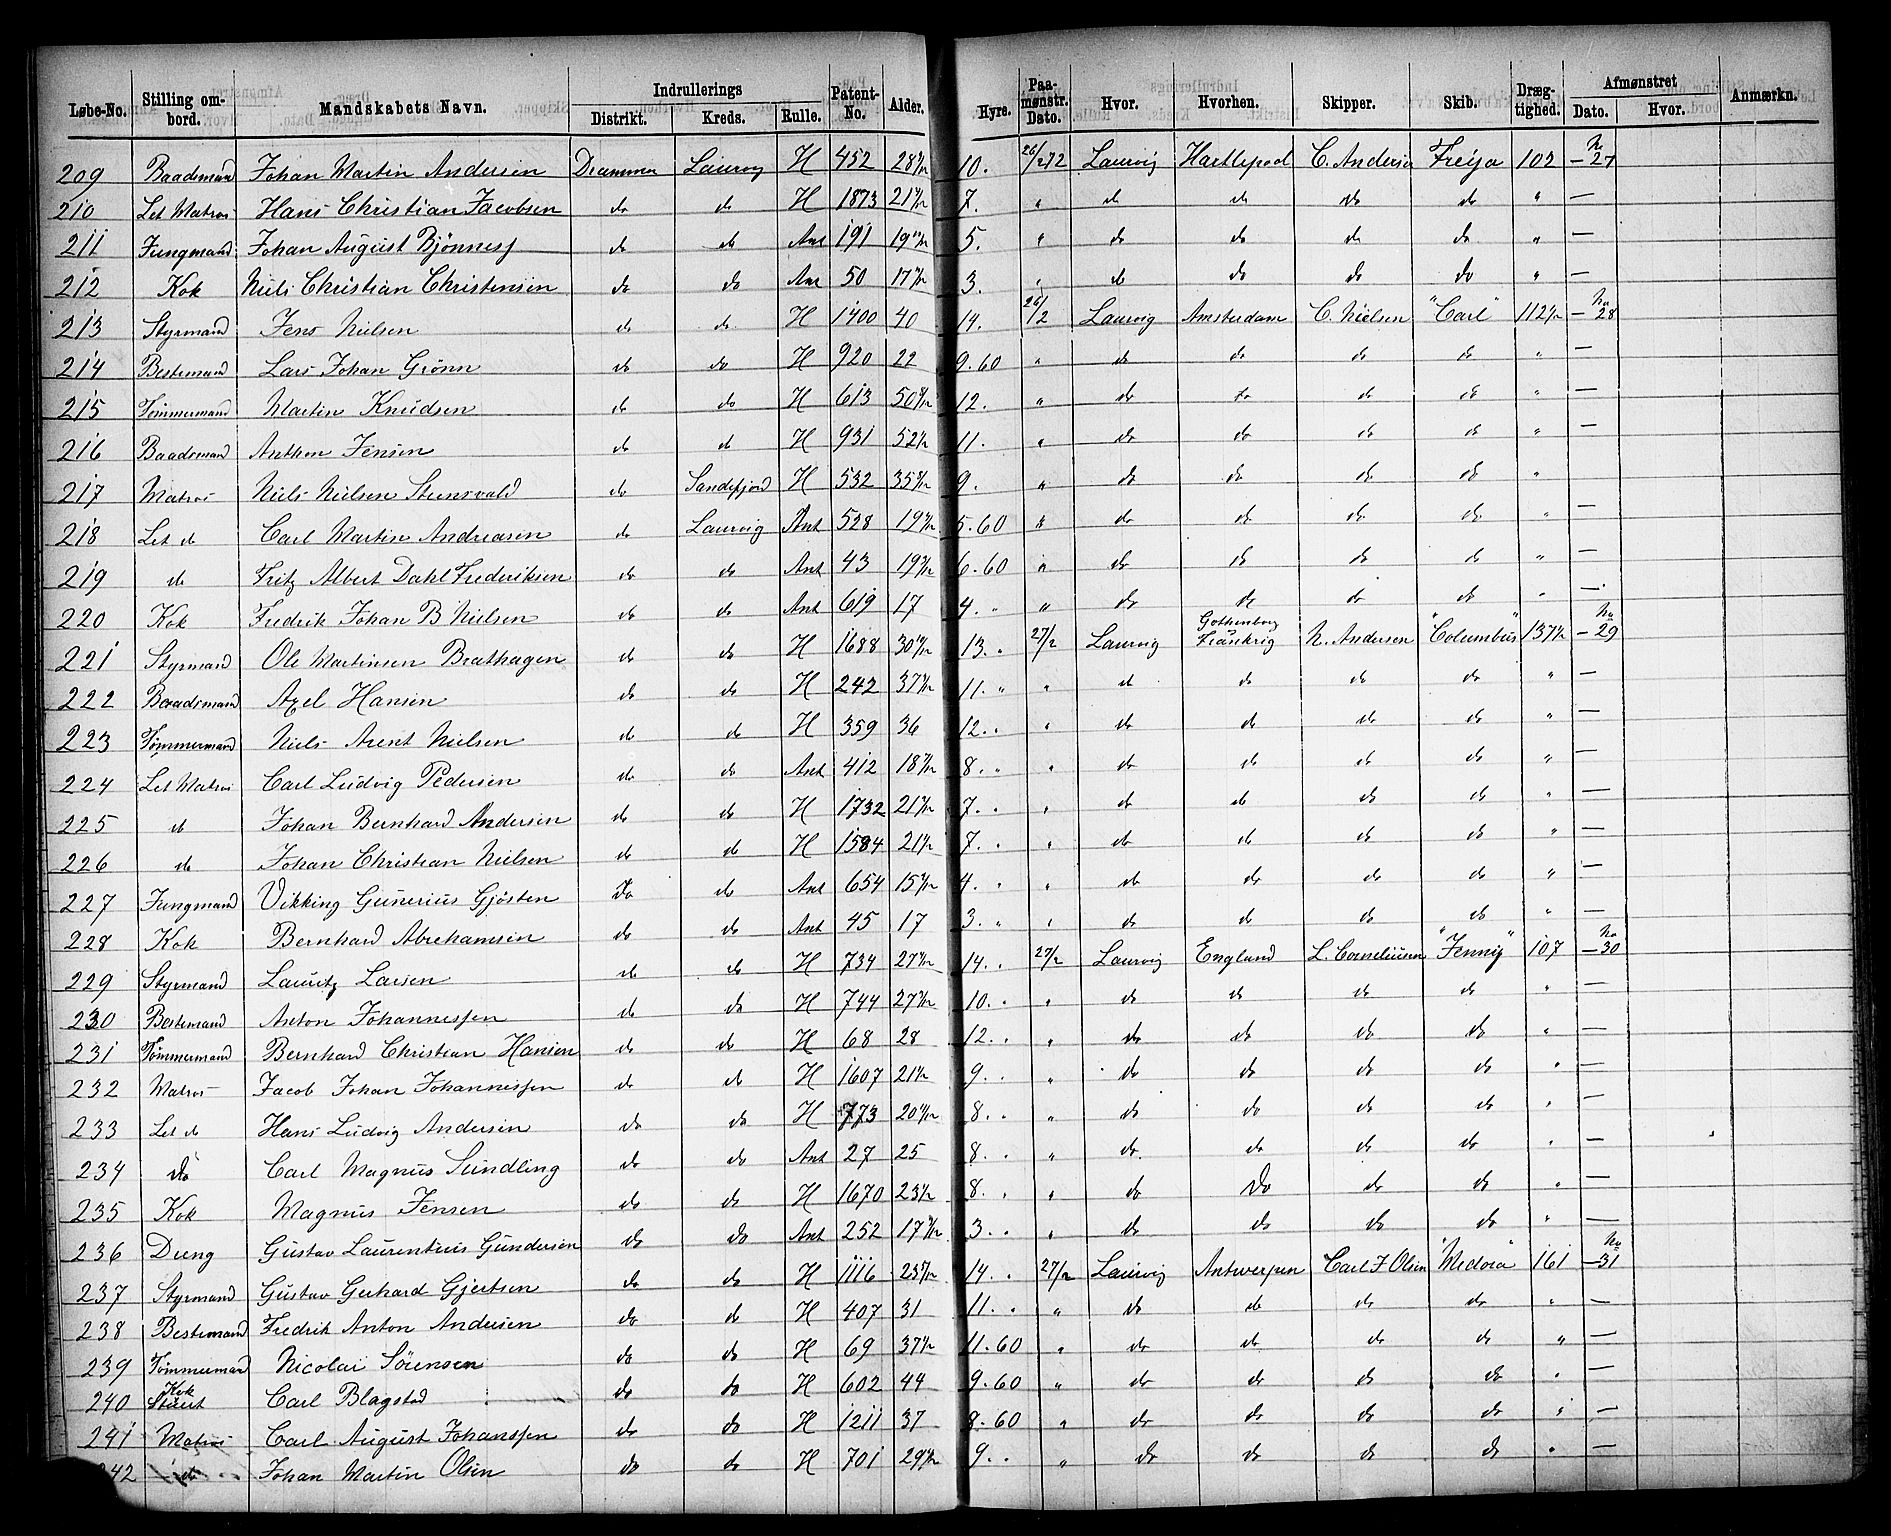 Løbe-No. Stilling ombord. Mandskabets Navn. Indrullerings Distrikt. Kreds. Rulle. Patent-No. Alder. Hyre. Paamønstr. Dato. Hvor. Hvorhen. Skipper. Skib. Drægtighed. Afmønstret Dato. Hvor. Anmærkn.
209 Baadsmand Johan Martin Andersen Drammen Laurvig H 452 10. 26/2 72 Laurvig Hartlepool C. Andersen Freija 102 No 27
210 Let Matros Hans Christian Jacobsen do do H 1873 7. " do do do do " —
211 Jungmand Johan August Bjönnesj do do Ant 191 5. " do do do do " —
212 Kok Niels Christian Christensen do do Ant 50 3. " do do do do " —
213 Styrmand Jens Nielsen do do H 1400 40 14. 26/2 Laurvig Amsterdam C. Nielsen "Carl" 112½ No 28
214 Bestemand Lars Johan Grönn do do H 920 22 9.60 " do do do do " —
215 Tömmermand Martin Knudsen do do H 613 12. " do do do do " —
216 Baadsmand Anthon Jensen do do H 931 11. " do do do do " —
217 Matros Niels Nielsen Steensvald do Sandefjord H 532 9. " do do do do " —
218 Let do Carl Martin Andreasen do Laurvig Ant 528 5.60 " do do do do " —
219 do Fritz Albert Dahl Frederiksen do do Ant 43 6.60 " do do do do " —
220 Kok Fredrik Johan B Nielsen do do Ant 619 17 4. " " do do do do " —
221 Styrmand Ole Martinsen Brathagen do do H 1688 13. " 27/2 Laurvig Gothenborg Frankrig N. Andersen "Columbus" 137½ No 29
222 Baadsmand Axel Hansen do do H 242 11. " " do do do do " —
223 Tömmermand Niels Arent Nielsen do do H 359 36 12. " " do do do do " —
224 Let Matros Carl Ludvig Pedersen do do Ant 412 8. " " do do do do " —
225 do Johan Bernhard Andersen do do H 1732 7. " " do do do do " —
226 do Johan Christian Nielsen do do H 1584 7. " " do do do do " —
227 Jungmand Vikking Gunerius Gjösten Do do Ant 654 4. " " do do do do " —
228 Kok Bernhard Abrehamsen do do Ant 45 17 3. " " do do do do " —
229 Styrmand Lauritz Larsen do do H 734 14. " 27/2 Laurvig England L. Corneliusen "Jenny" 107 No 30
230 Bestemand Anton Johannessen do do H 744 10. " " do do do do " —
231 Tömmermand Bernhard Christian Hansen do do H 68 28 12. " " do do do do " —
232 Matros Jacob Johan Johannessen do do H 1607 9. " " do do do do " —
233 Let do Hans Ludvig Andersen do do H 773 8. " " do do do do " —
234 do Carl Magnus Sundling do do Ant 27 25 8. " " do do do do " —
235 Kok Magnus Jensen do do H 1670 8. " " do Do do do " —
236 Dung Gustav Laurentius Gundersen do do Ant 252 3. " " do do do do " —
237 Styrmand Gustav Gerhard Gjertsen do do H 1116 14. " 27/2 Laurvig Antwerpen Carl F Olsen "Medora" 161 No 31
238 Bestemand Fredrik Anton Andersen do do H 407 31 11. " " do do do do " —
239 Tömmermand Nicolai Sörensen do do H 69 11.60 " do do do do " —
240 Kok Stuert Carl Blagstad do do H 602 44 9.60 " do do do do " —
241 Matros Carl August Johanssen do do H 1211 37 8.60 " do do do do " —
242 do Johan Martin Olsen do do H 701 9. " " do do do do " —